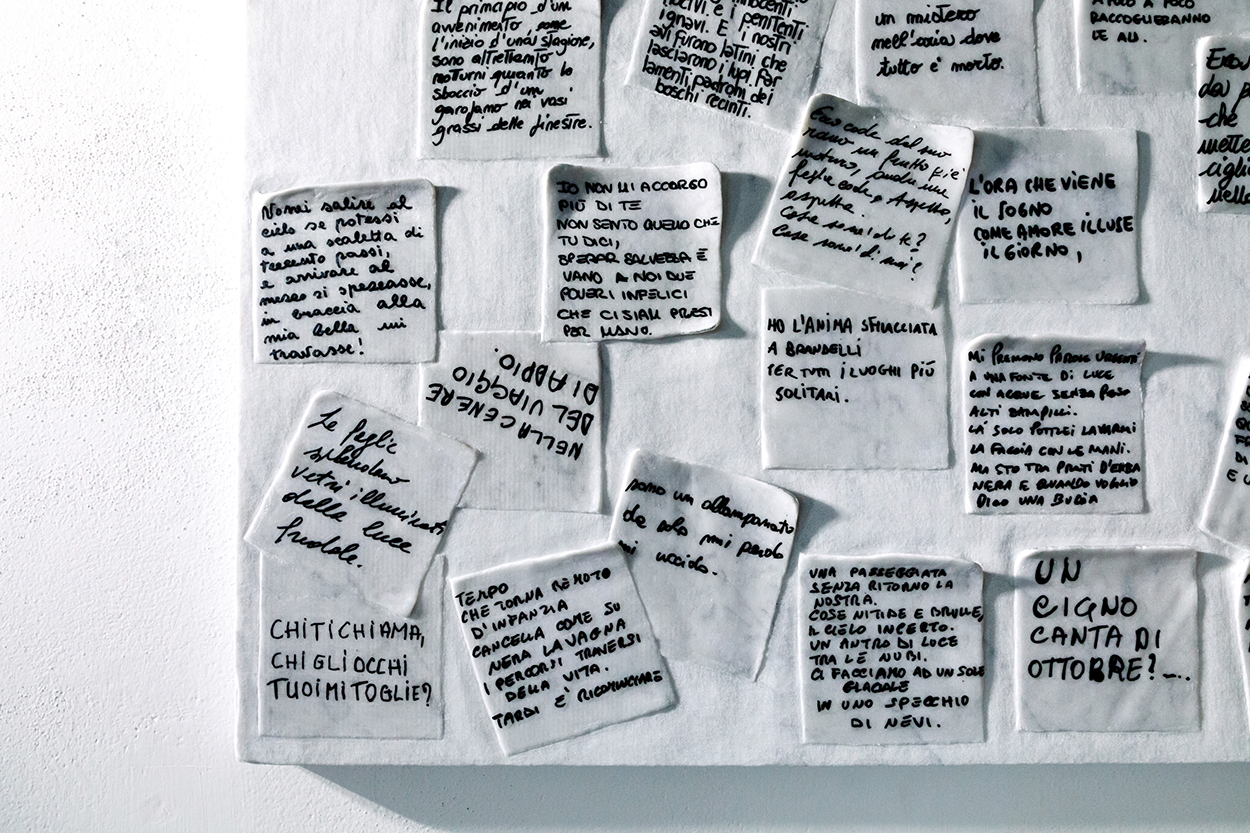 Il principio d'un
avvenimento, come
l'inizio d'una stagione,
sono altrettanto
notturni quanto lo
sboccio d'un
garofano nei vasi
grassi delle finestre.
innocenti
e i penitenti
ignavi. E i nostri
avi furono latini che
lasciarono i lupi far
lamenti padroni dei
boschi recinti.
un mistero
nell'aria dove
tutto è morto.
A POCO A POCO
RACCOGLIERANNO
LE ALI.
da
che
mette
Vorrei salire al
cielo se potessi
a una scaletta di
trecento passi,
e arrivare al
mezzo si spezzasse,
in braccia alla
mia bella mi
trovasse!
IO NON MI ACCORGO
PIÙ DI TE
NON SENTO QUELLO CHE
TU DICI,
SPERAR SALVEZZA È
VANO A NOI DUE
POVERI INFELICI
CHE CI SIAM PRESI
PER MANO.
Ecco cade dal suo
ramo un frutto
maturo, anche una
foglia cade. Aspetto,
aspetta.
Cosa sarai di te?
Cosa sarai di me?
L'ORA CHE VIENE
IL SOGNO
COME AMORE ILLUSE
IL GIORNO,
HO L'ANIMA SFILACCIATA
A BRANDELLI
PER TUTTI I LUOGHI PIÙ
SOLITARI.
MI PREMONO PAROLE URGENTI
A UNA FONTE DI LUCE
CON ACQUE SENZA POSO
ALTI ZAMPILLI.
LÁ SOLO POTREI LAVARMI
LA FACCIA CON LE MANI.
MA STO TRA PRATI D'ERBA
NERA E QUANDO VOGLIO
DICO UNA BUGIA
NELLA CENERE
DEL VIAGGIO
DI ADDIO.
Le foglie
splendono
vetri illuminati
dalla luce
fredda.
sono un allampanato
da solo mi perdo
mi uccido.
CHI TI CHIAMA,
CHI GLI OCCHI
TUOI MI TOGLIE?
TEMPO
CHE TORNA REMOTO
D'INFANZIA
CANCELLA COME SU
NERA LAVAGNA
I PERCORSI TRAVERSI
DELLA VITA.
TARDI È RICOMINCIARE
UNA PASSEGGIATA
SENZA RITORNO LA
NOSTRA.
COSE NITIDE E BRULLE,
IL CIELO INCERTO.
UN ANTRO DI LUCE
TRA LE NUBI.
CI FACCIAMO AD UN SOLE
GLACIALE
IN UNO SPECCHIO
DI NEVI.
UN
CIGNO
CANTA DI
OTTOBRE?...